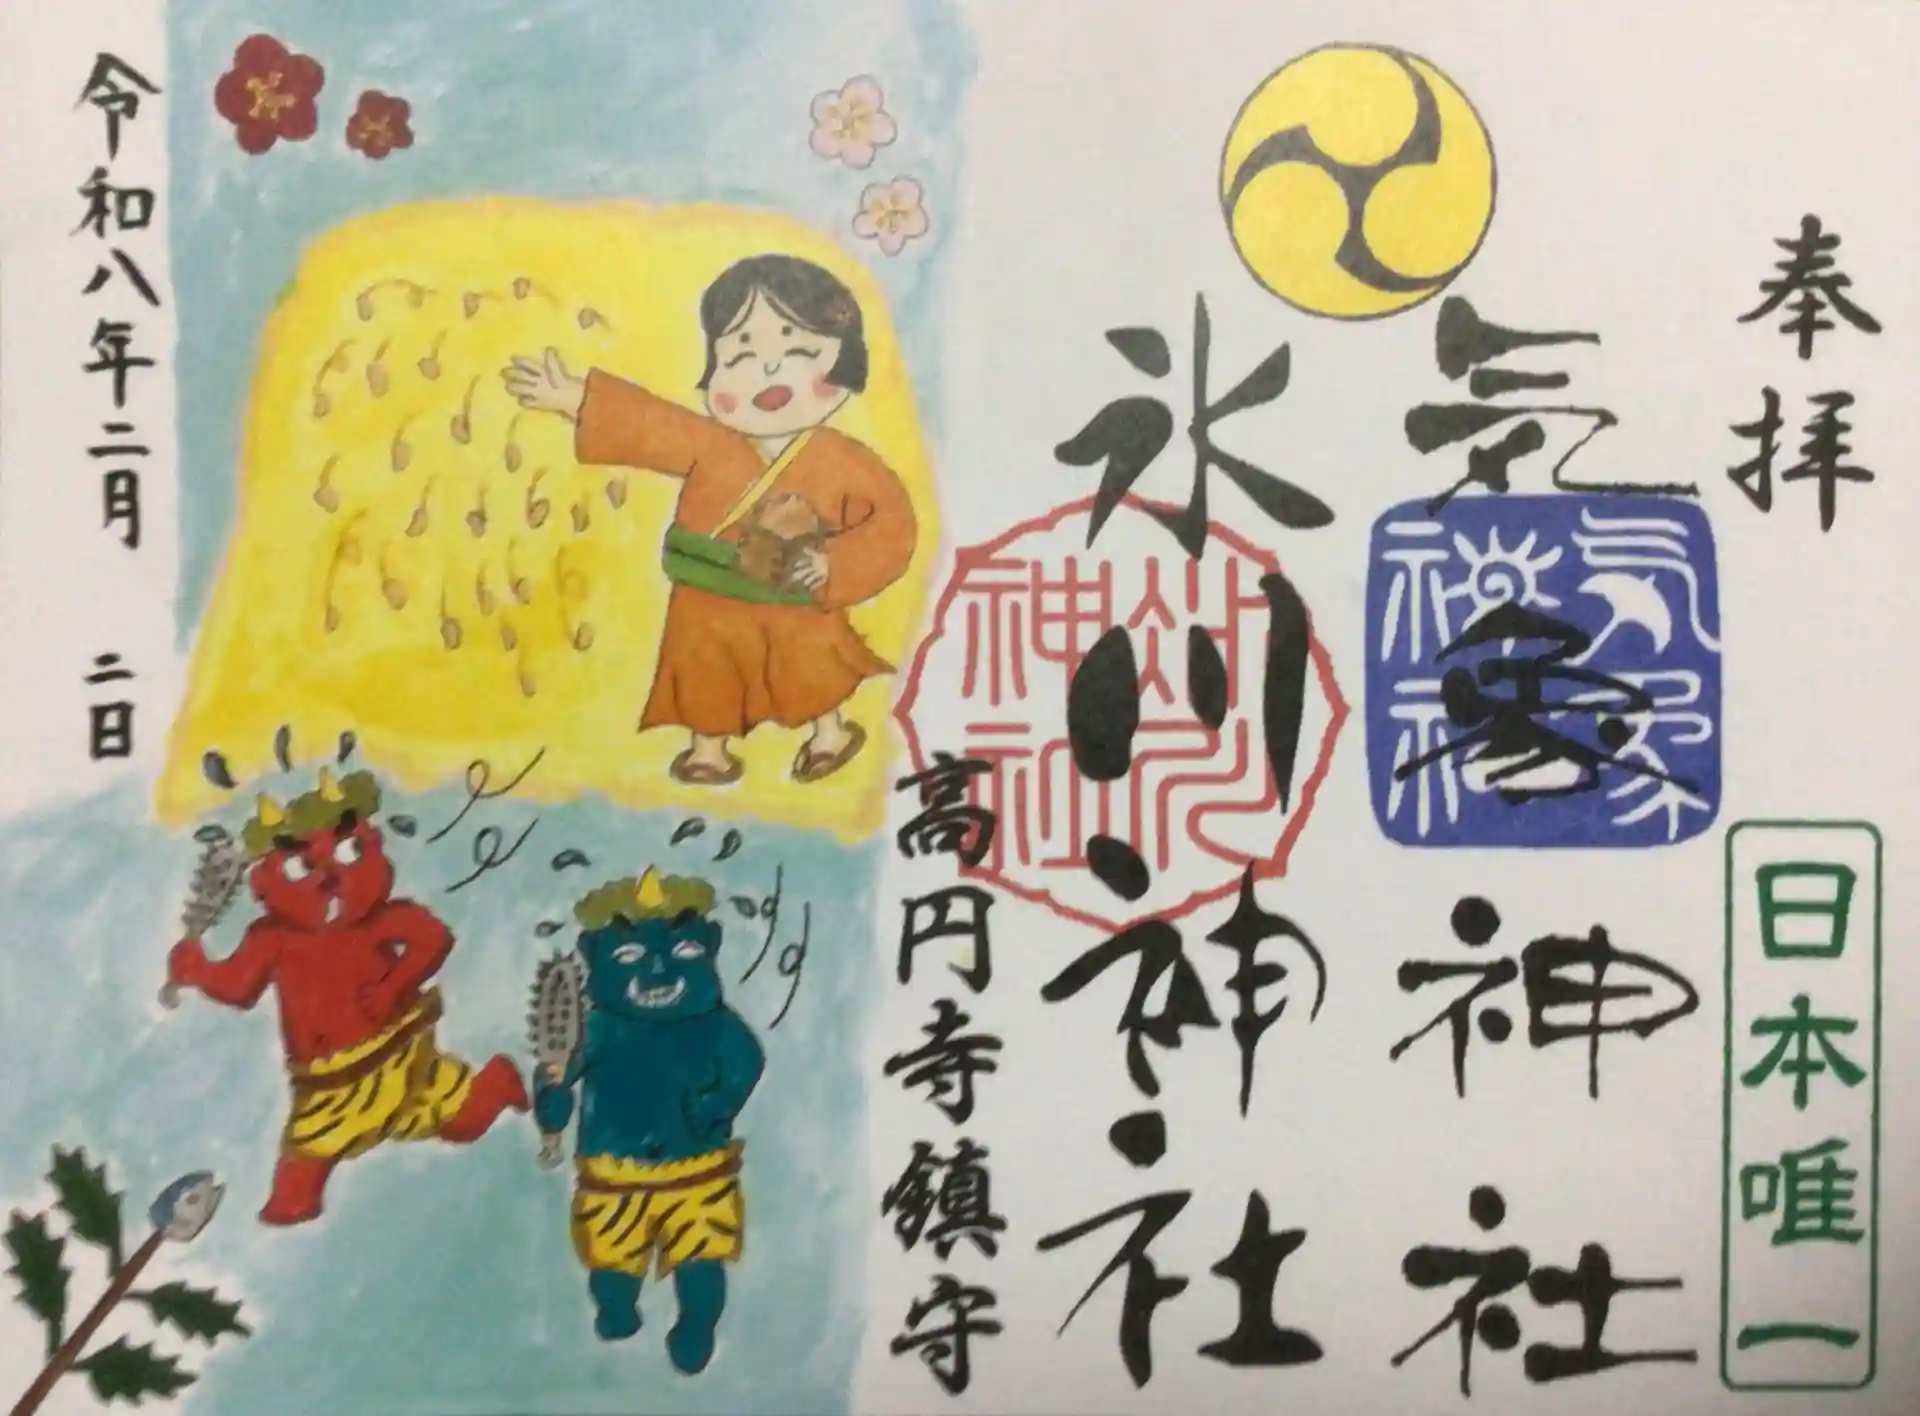 奉拝
日本唯一
氣象神社
气象神社
氷川神社
氷川神社
高円寺鎮守
令和八年二月二日